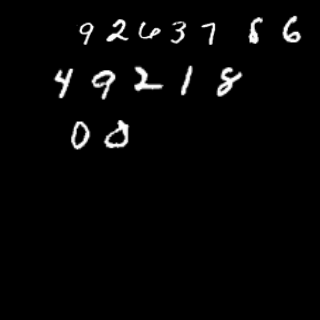 9 2 6 3 7 8 6
4 9 2 1 8
0 0